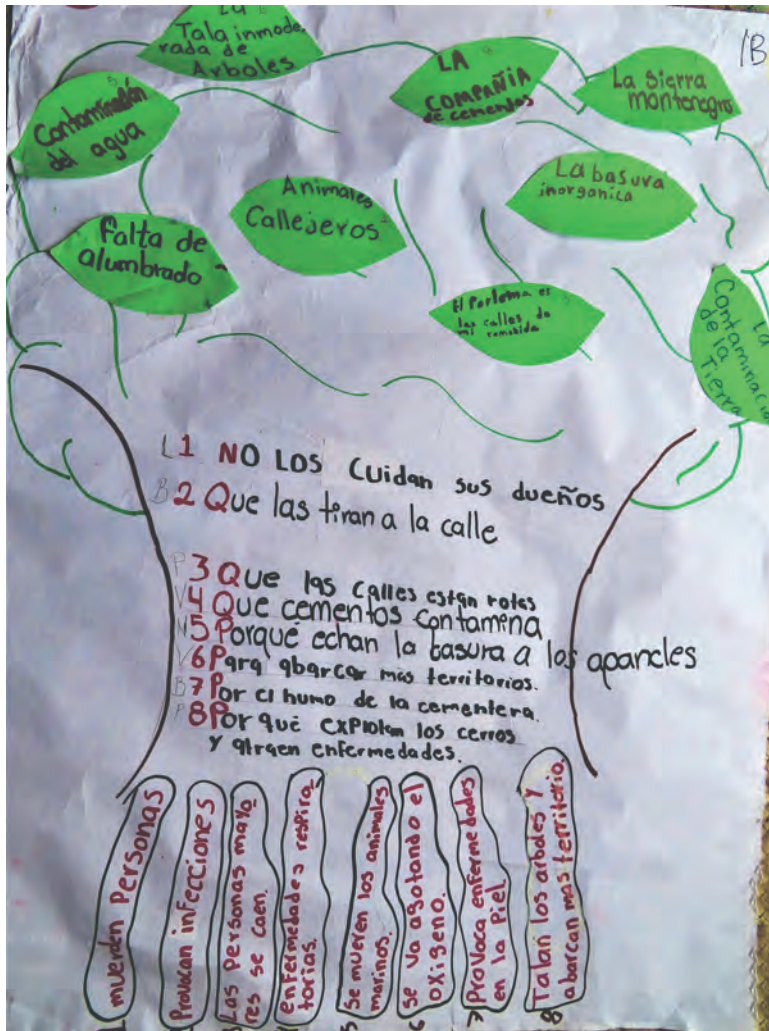 1B
La
Tala inmode
rada de
Arboles
LA
COMPAÑIA
de cementos
La Sierra
montenegro
Contaminación
del agua
Animales
Callejeros
La basura
inorganica
Falta de
alumbrado
El Porlema es
las calles de
mi comunida
La
Contaminacio
de la
Tierra
L 1 NO LOS Cuidan sus dueños
B 2 Que las tiran a la calle
P 3 Que las calles están rotas
V 4 Que cementos contamina
N 5 Porqué echan la basura a los apancles
V 6 Para abarcar mas territorios.
B 7 Por el humo de la cementera.
P 8 Por qué explotan los cerros
y atraen enfermedades.
1 muerden Personas
Provocan infecciones
3 Las Personas mayo
res se caen.
4 enfermedades respira
torias.
5 Se mueren los animales
marinos.
6 Se va agotando el
oxigeno.
7 Provoca enfermedades
en la Piel.
8 Talan los arboles y
abarcan mas territorio.